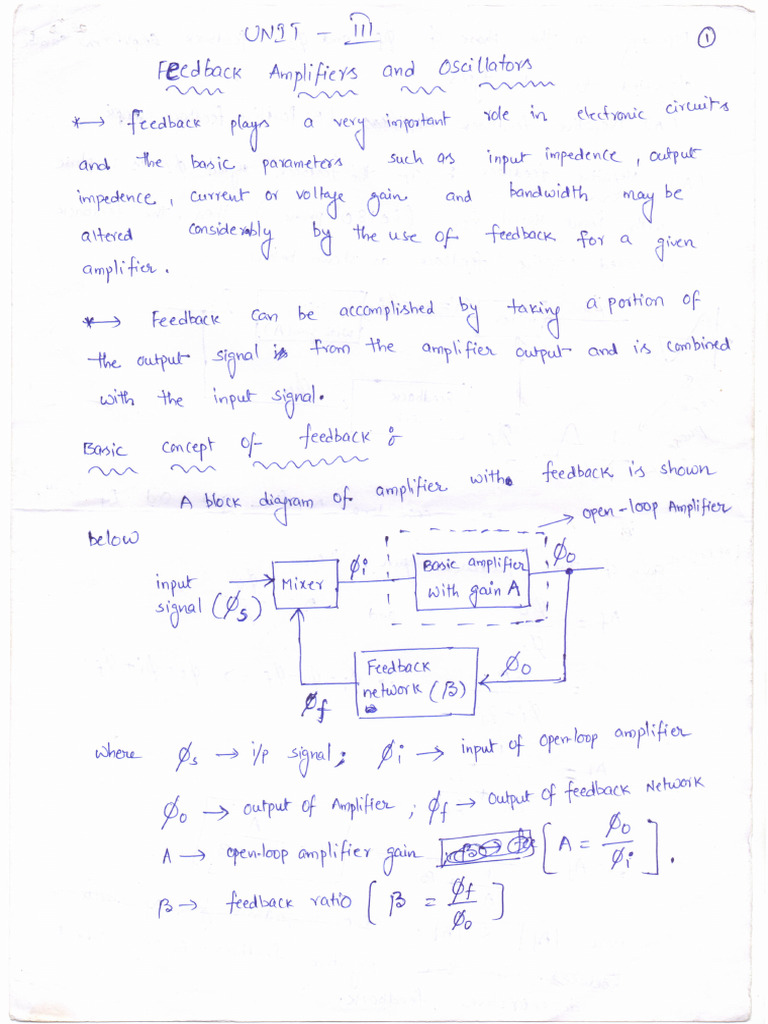 UNIT - III
1
Feedback Amplifiers and Oscillators
*→ feedback plays a very important role in electronic circuits
and the basic parameters such as input impedence, output
impedence, current or voltage gain and bandwidth may be
altered considerably by the use of feedback for a given
amplifier.
*→ Feedback can be accomplished by taking a portion of
the output signal from the amplifier output and is combined
with the input signal.
Basic concept of feedback :
A block diagram of amplifier with feedback is shown
below
→ open-loop Amplifier
input
signal (ϕs)
Mixer
ϕi
Basic amplifier
with gain A
ϕo
Feedback
network (β)
ϕo
ϕf
where ϕs → i/p signal; ϕi → input of open-loop amplifier
ϕo → output of Amplifier ; ϕf → output of feedback Network
A → open-loop amplifier gain [A = ϕo/ϕi].
β → feedback ratio [β = ϕf/ϕo]